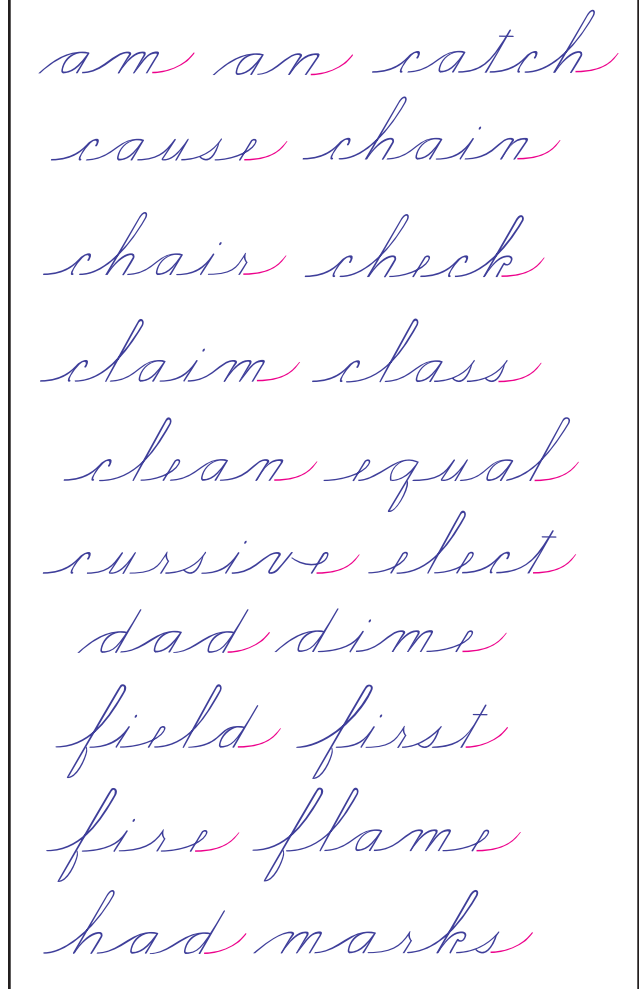 am an catch
cause chain
chair check
claim class
clean equal
cursive elect
dad dime
field first
fire flame
had marks